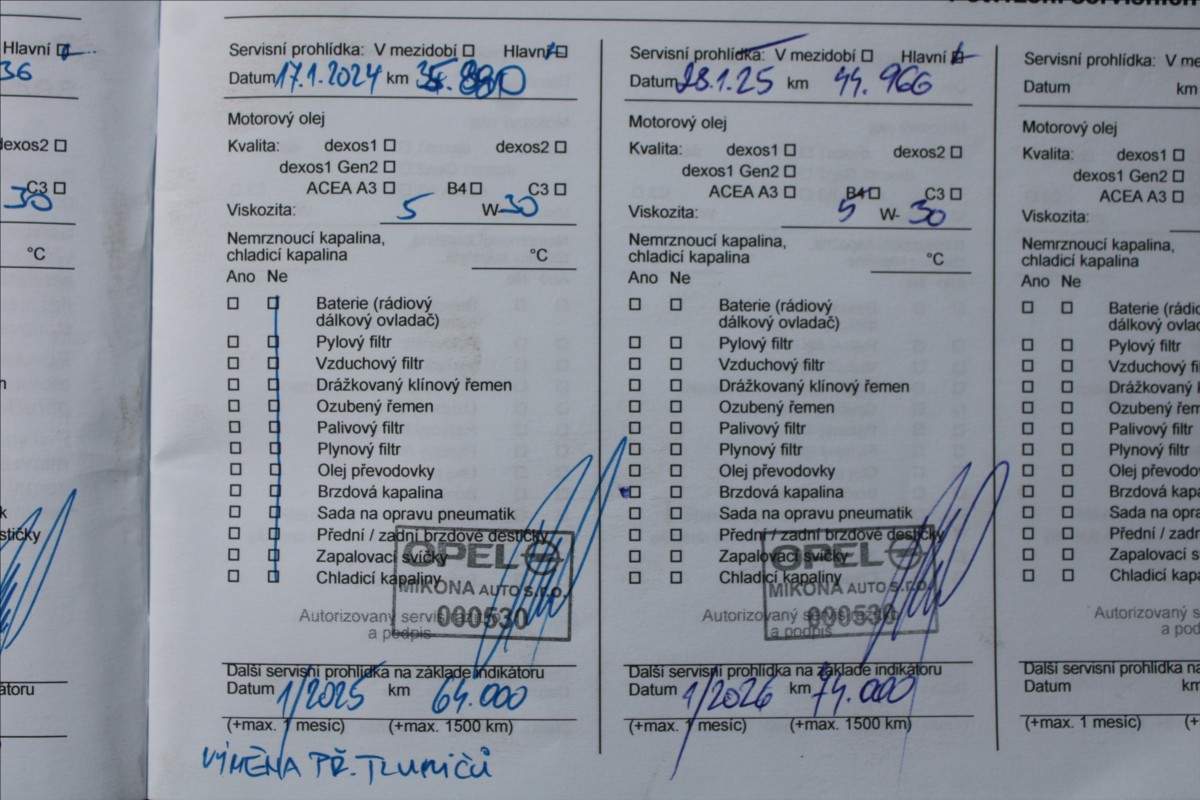 Hlavní
36
dexos2
C3
30
°C
stičky
átoru
Servisní prohlídka: V mezidobí Hlavní
Datum 17.1.2024 km
Motorový olej
Kvalita: dexos1 dexos2
dexos1 Gen2
ACEA A3 B4 C3
Viskozita: 5 W-30
Nemrznoucí kapalina,
chladicí kapalina °C
Ano Ne
Baterie (rádiový
dálkový ovladač)
Pylový filtr
Vzduchový filtr
Drážkovaný klínový řemen
Ozubený řemen
Palivový filtr
Plynový filtr
Olej převodovky
Brzdová kapalina
Sada na opravu pneumatik
Přední / zadní brzdové destičky
Zapalovací svíčky
Chladicí kapaliny
OPEL
MIKONA AUTO s.r.o.
000530
Autorizovaný servis razítko
a podpis
Další servisní prohlídka na základe indikátoru
Datum 1/2025 km 64.000
(+max. 1 mesíc) (+max. 1500 km)
VÝMĚNA PŘ. TLUMIČŮ
Servisní prohlídka: V mezidobí Hlavní
Datum 28.1.25 km 44.966
Motorový olej
Kvalita: dexos1 dexos2
dexos1 Gen2
ACEA A3 B4 C3
Viskozita: 5 W-30
Nemrznoucí kapalina,
chladicí kapalina °C
Ano Ne
Baterie (rádiový
dálkový ovladač)
Pylový filtr
Vzduchový filtr
Drážkovaný klínový řemen
Ozubený řemen
Palivový filtr
Plynový filtr
Olej převodovky
Brzdová kapalina
Sada na opravu pneumatik
Přední / zadní brzdové destičky
Zapalovací svíčky
Chladicí kapaliny
OPEL
MIKONA AUTO s.r.o.
000530
Autorizovaný servis razítko
a podpis
Další servisní prohlídka na základe indikátoru
Datum 1/2026 km 74.000
(+max. 1 mesíc) (+max. 1500 km)
Servisní prohlídka: V me
Datum km
Motorový olej
Kvalita: dexos1
dexos1 Gen2
ACEA A3
Viskozita:
Nemrznoucí kapalina,
chladicí kapalina
Ano Ne
Baterie (rádio
dálkový ovlad
Pylový filtr
Vzduchový fil
Drážkovaný k
Ozubený řeme
Palivový filtr
Plynový filtr
Olej převodo
Brzdová kapa
Sada na opra
Přední / zadní
Zapalovací s
Chladicí kapa
Autorizovaný s
a pod
Další servisní prohlídka na
Datum km
(+max. 1 mesíc) (+